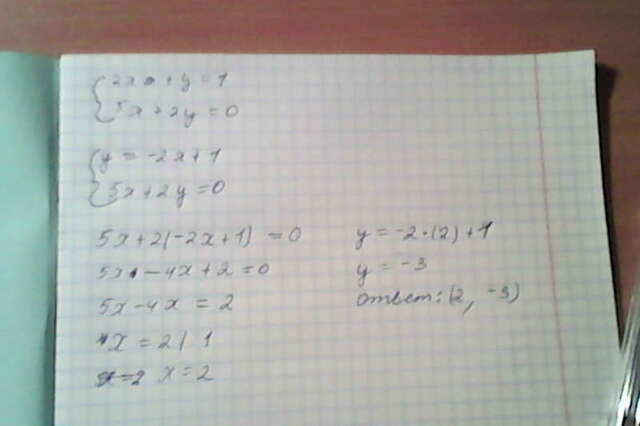 2x + y = 1
5x + 2y = 0
y = -2x + 1
5x + 2y = 0
5x + 2(-2x+1) = 0
5x - 4x + 2 = 0
5x - 4x = 2
x = 2 | 1
x = 2
y = -2·(2) + 1
y = -3
ответ: (2, -3)